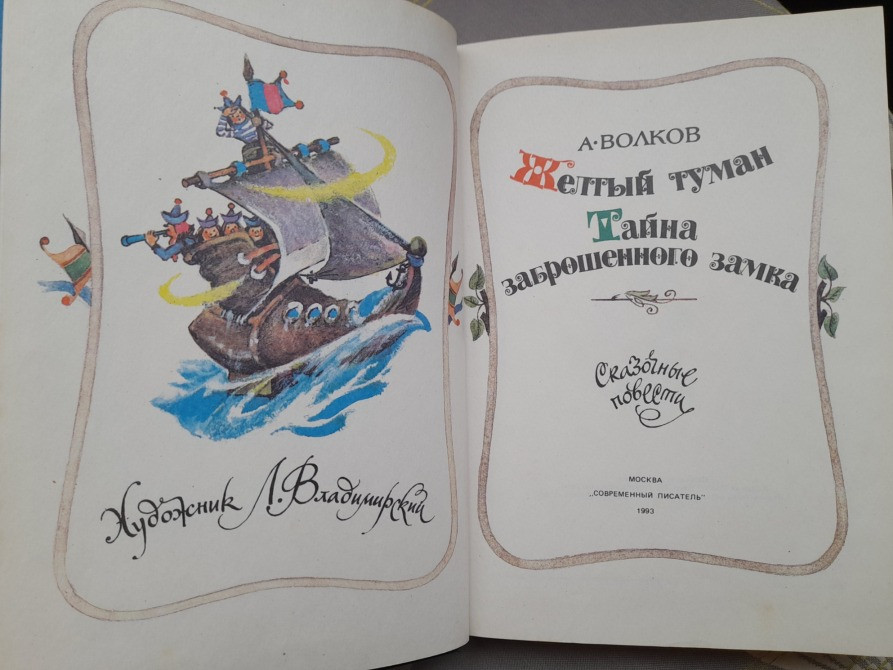 Художник Л. Владимирский
А·ВОЛКОВ
Желтый туман
Тайна
заброшенного замка
Сказочные
повести
МОСКВА
„СОВРЕМЕННЫЙ ПИСАТЕЛЬ"
1993